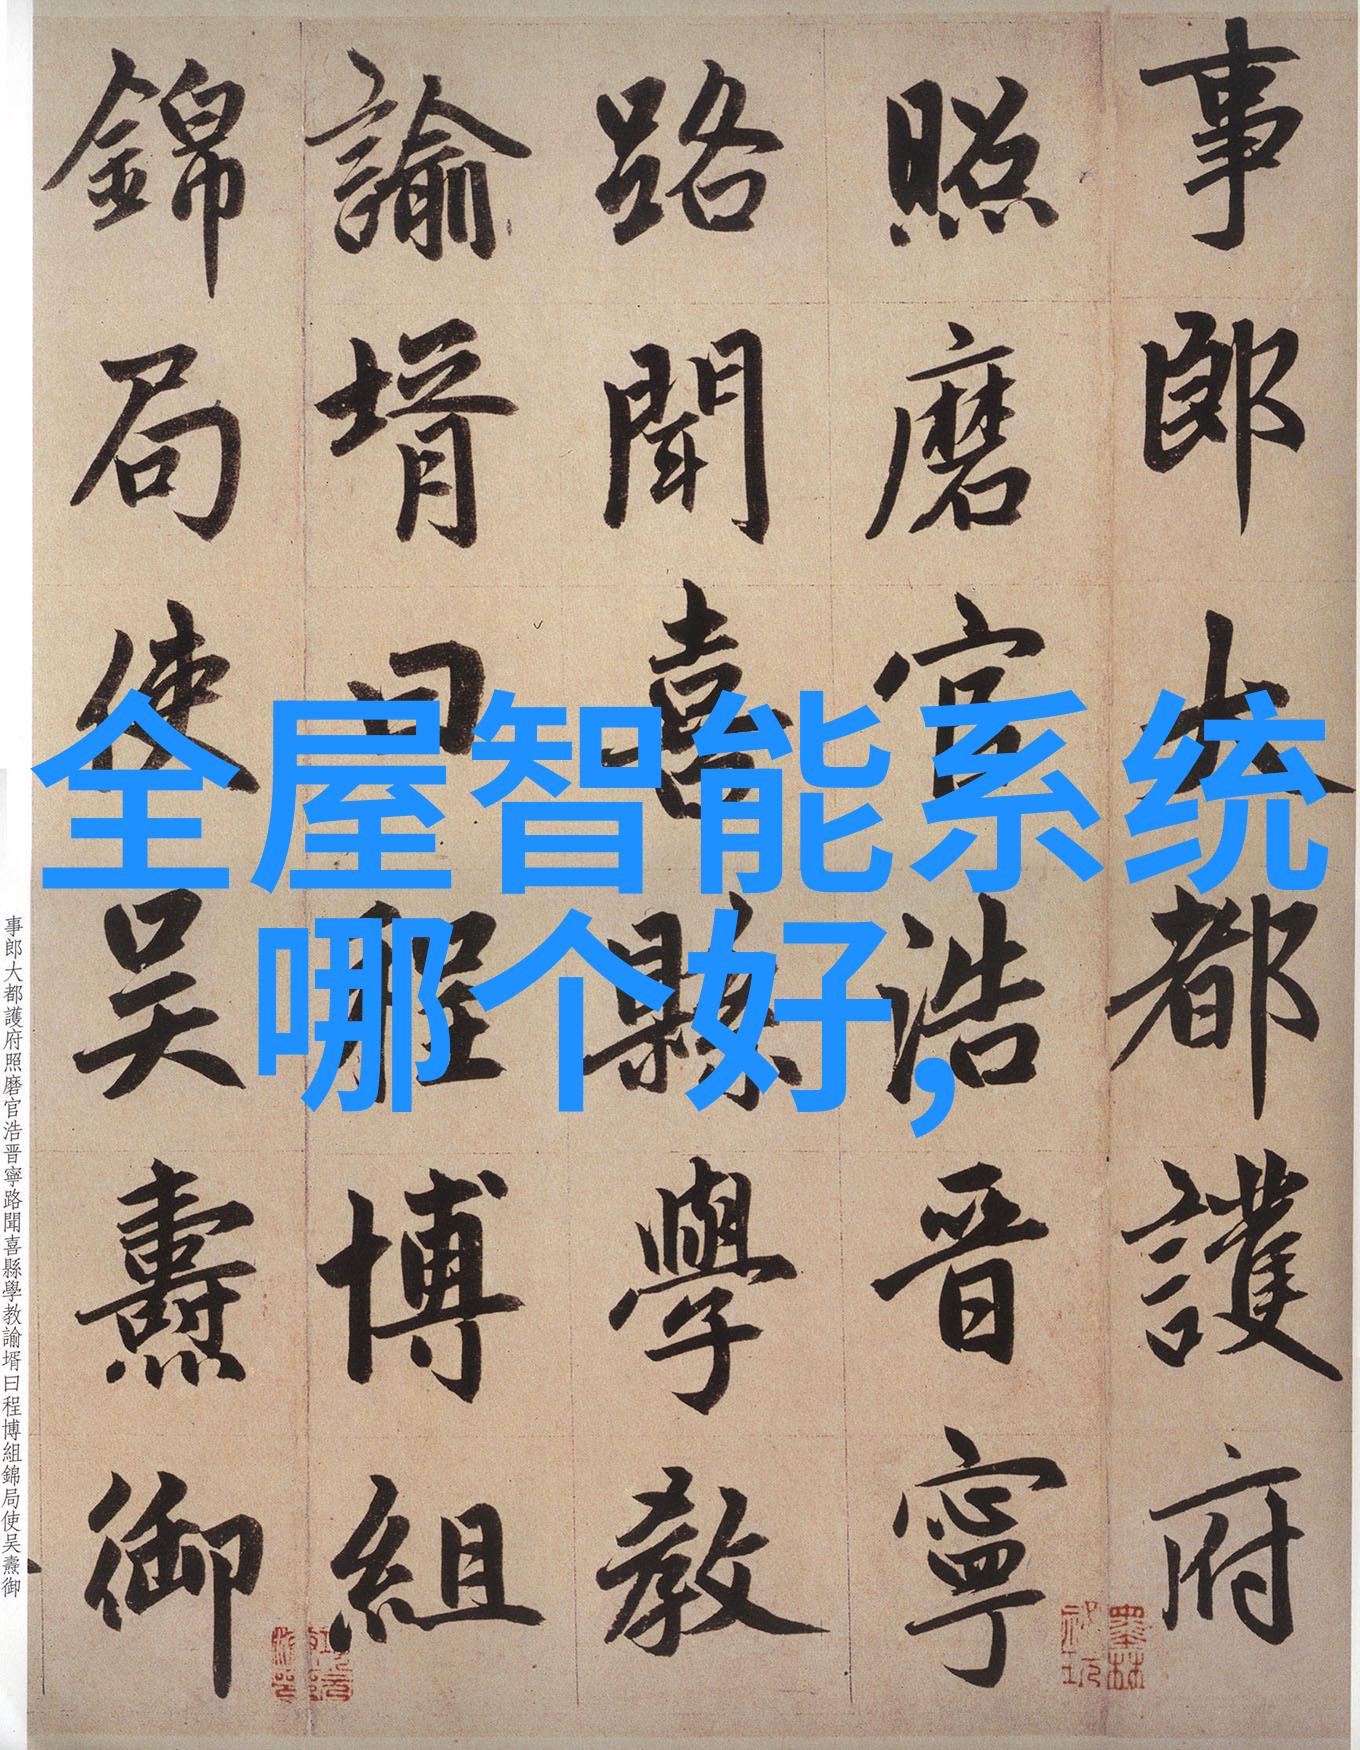 事郎大都護府
照磨官浩晋寧
路聞喜縣學教
諭壻曰程博組
錦局使吴燾御
全屋智能系统
哪个好，
事郎大都護府照磨官浩晋寧路聞喜縣學教諭壻曰程博組錦局使吴燾御